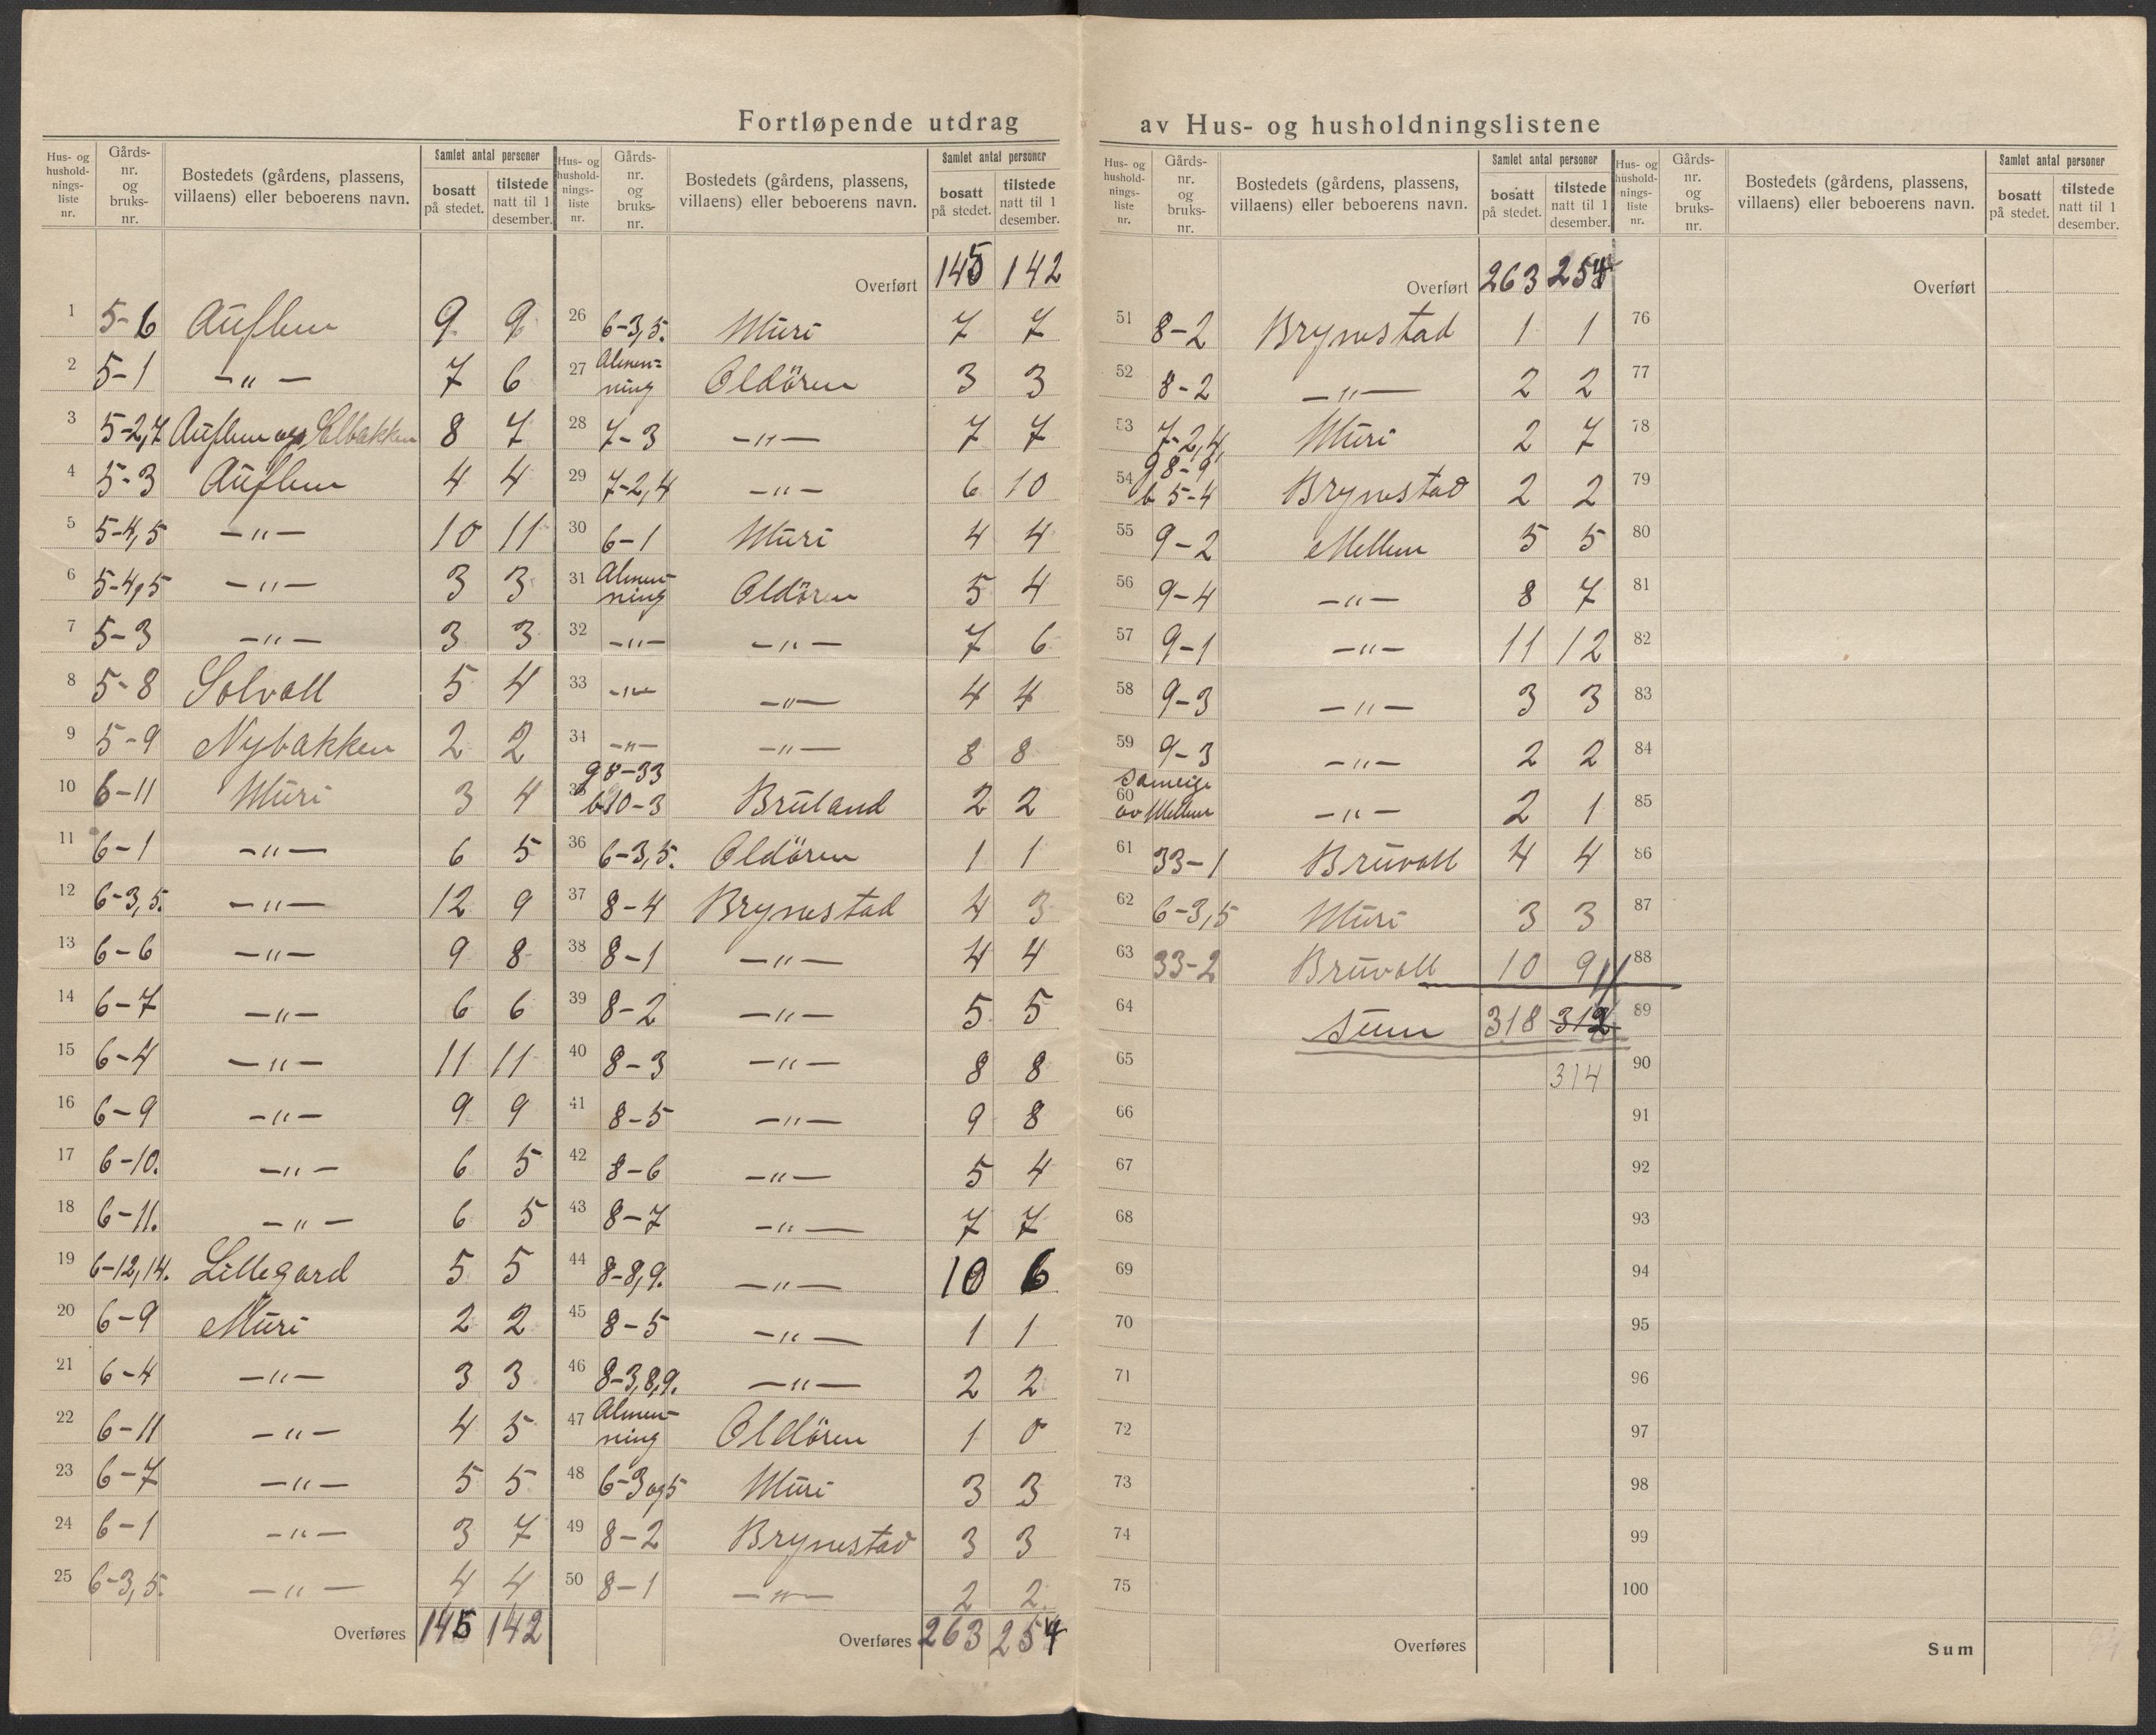 Fortløpende utdrag av Hus- og husholdningslistene
Hus- og husholdningsliste nr. | Gårdsnr. og bruksnr. | Bostedets (gårdens, plassens, villaens) eller beboerens navn. | Samlet antal personer bosatt på stedet. | tilstede natt til 1 desember.
1 5-6 Auflem 9 9
2 5-1 -"- 7 6
3 5-2,7 Auflem og Solbakken 8 7
4 5-3 Auflem 4 4
5 5-4,5 -"- 10 11
6 5-4,5 -"- 3 3
7 5-3 -"- 3 3
8 5-8 Solvoll 5 4
9 5-9 Nybakken 2 2
10 6-11 Muri 3 4
11 6-1 -"- 6 5
12 6-3,5. -"- 12 9
13 6-6 -"- 9 8
14 6-7 -"- 6 6
15 6-4 -"- 11 11
16 6-9 -"- 9 9
17 6-10. -"- 6 5
18 6-11. -"- 6 5
19 6-12,14. Lillegard 5 5
20 6-9 Muri 2 2
21 6-4 -"- 3 3
22 6-11 -"- 4 5
23 6-7 -"- 5 5
24 6-1 -"- 3 7
25 6-3,5. -"- 4 4
Overføres 145 142
Hus- og husholdningsliste nr. | Gårdsnr. og bruksnr. | Bostedets (gårdens, plassens, villaens) eller beboerens navn. | Samlet antal personer bosatt på stedet. | tilstede natt til 1 desember.
Overført 145 142
26 6-3,5. Muri 7 7
27 Almenning Oldören 3 3
28 7-3 -"- 7 7
29 7-2,4 -"- 6 10
30 6-1 Muri 4 4
31 Almenning Oldören 5 4
32 -"- -"- 7 6
33 -"- -"- 4 4
34 -"- -"- 8 8
35 g 8-33 b 10-3 Bruland 2 2
36 6-3,5. Oldören 1 1
37 8-4 Brynestad 4 3
38 8-1 -"- 4 4
39 8-2 -"- 5 5
40 8-3 -"- 8 8
41 8-5 -"- 9 8
42 8-6 -"- 5 4
43 8-7 -"- 7 7
44 8-8,9. -"- 10 6
45 8-5 -"- 1 1
46 8-3,8,9. -"- 2 2
47 Almenning Oldören 1 0
48 6-3 og 5 Muri 3 3
49 8-2 Brynestad 3 3
50 8-1 -"- 2 2
Overføres 263 254
Hus- og husholdningsliste nr. | Gårdsnr. og bruksnr. | Bostedets (gårdens, plassens, villaens) eller beboerens navn. | Samlet antal personer bosatt på stedet. | tilstede natt til 1 desember.
Overført 263 254
51 8-2 Brynestad 1 1
52 8-2 -"- 2 2
53 7-2,4, Muri 2 7
54 g 8-9 b 5-4 Brynestad 2 2
55 9-2 Mellem 5 5
56 9-4 -"- 8 7
57 9-1 -"- 11 12
58 9-3 -"- 3 3
59 9-3 -"- 2 2
60 Sameige av Mellem -"- 2 1
61 33-1 Bruvoll 4 4
62 6-3,5 Muri 3 3
63 33-2 Bruvoll 10 9 11
64 Sum 318 312
65 314
66
67
68
69
70
71
72
73
74
75
Overføres
Hus- og husholdningsliste nr. | Gårdsnr. og bruksnr. | Bostedets (gårdens, plassens, villaens) eller beboerens navn. | Samlet antal personer bosatt på stedet. | tilstede natt til 1 desember.
Overført
76
77
78
79
80
81
82
83
84
85
86
87
88
89
90
91
92
93
94
95
96
97
98
99
100
Sum